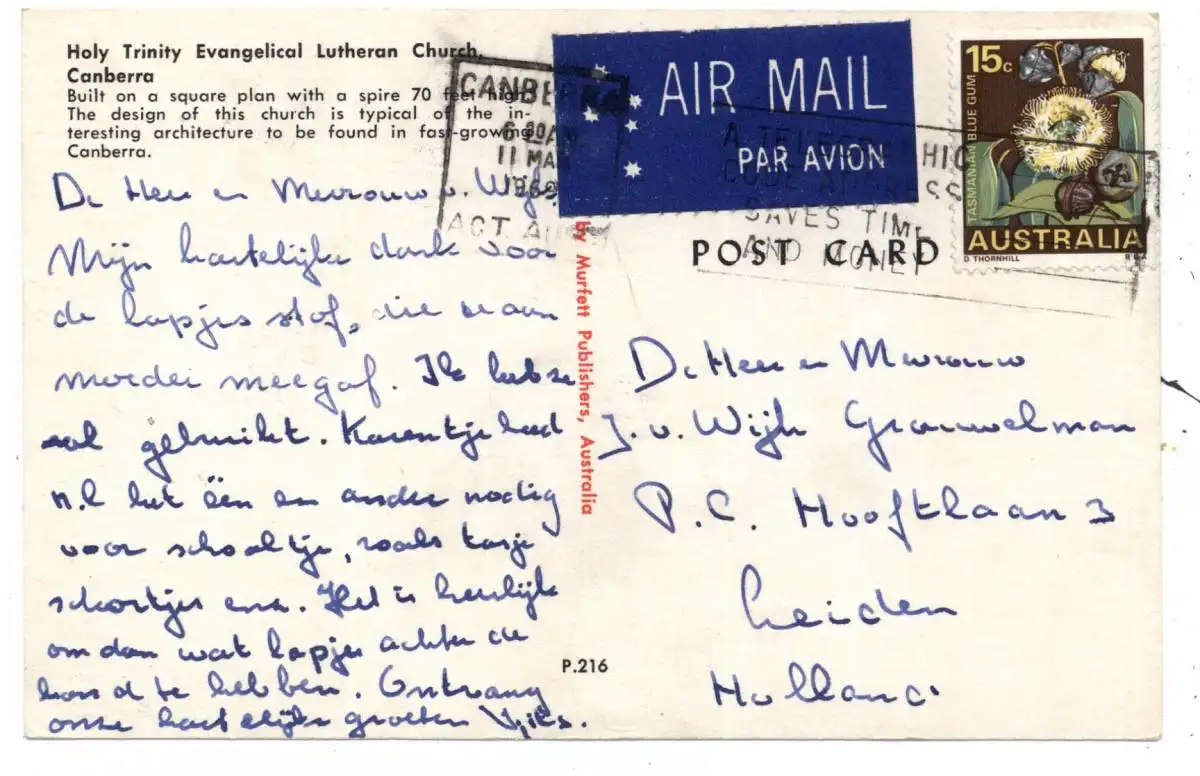 Holy Trinity Evangelical Lutheran Church,
Canberra
Built on a square plan with a spire 70 feet high.
The design of this church is typical of the in-
teresting architecture to be found in fast-growing
Canberra.
De Heer en Mevrouw v. Wijk
Mijn hartelijke dank voor
de lapjes stof, die u aan
moeder meegaf. Ik heb ze
al gebruikt. Karentje had
n.l het één en ander nodig
voor schooltje, zoals tasje
schortjes enz. Het is heerlijk
om dan wat lapjes achter de
hand te hebben. Ontvang
onze hartelijke groeten
by Murfett Publishers, Australia
P.216
CANBERRA
6 30 AM
11 MAR
1969
ACT. AUST
AIR MAIL
PAR AVION
A TELEGRAPHIC
CODE ADDRESS
SAVES TIME
AND MONEY
15c
TASMANIAN BLUE GUM
AUSTRALIA
D THORNHILL
POST CARD
De Heer en Mevrouw
J. v. Wijk Grauwelman
P.C. Hooftlaan 3
Leiden
Holland